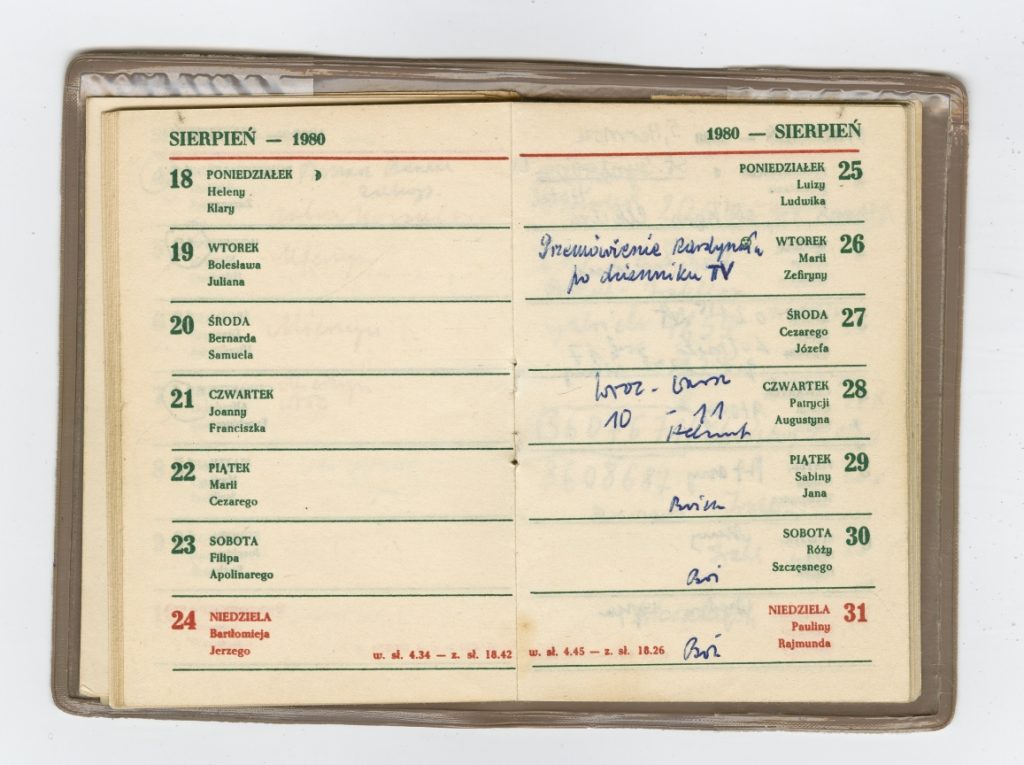 SIERPIEŃ — 1980
18 PONIEDZIAŁEK
Heleny
Klary
19 WTOREK
Bolesława
Juliana
20 ŚRODA
Bernarda
Samuela
21 CZWARTEK
Joanny
Franciszka
22 PIĄTEK
Marii
Cezarego
23 SOBOTA
Filipa
Apolinarego
24 NIEDZIELA
Bartłomieja
Jerzego
w. sł. 4.34 — z. sł. 18.42
1980 — SIERPIEŃ
PONIEDZIAŁEK 25
Luizy
Ludwika
Przemówienie Kardynała
po dzienniku TV
WTOREK 26
Marii
Zefiryny
ŚRODA 27
Cezarego
Józefa
10 - 11
CZWARTEK 28
Patrycji
Augustyna
PIĄTEK 29
Sabiny
Jana
SOBOTA 30
Róży
Szczęsnego
NIEDZIELA 31
Pauliny
Rajmunda
w. sł. 4.45 — z. sł. 18.26